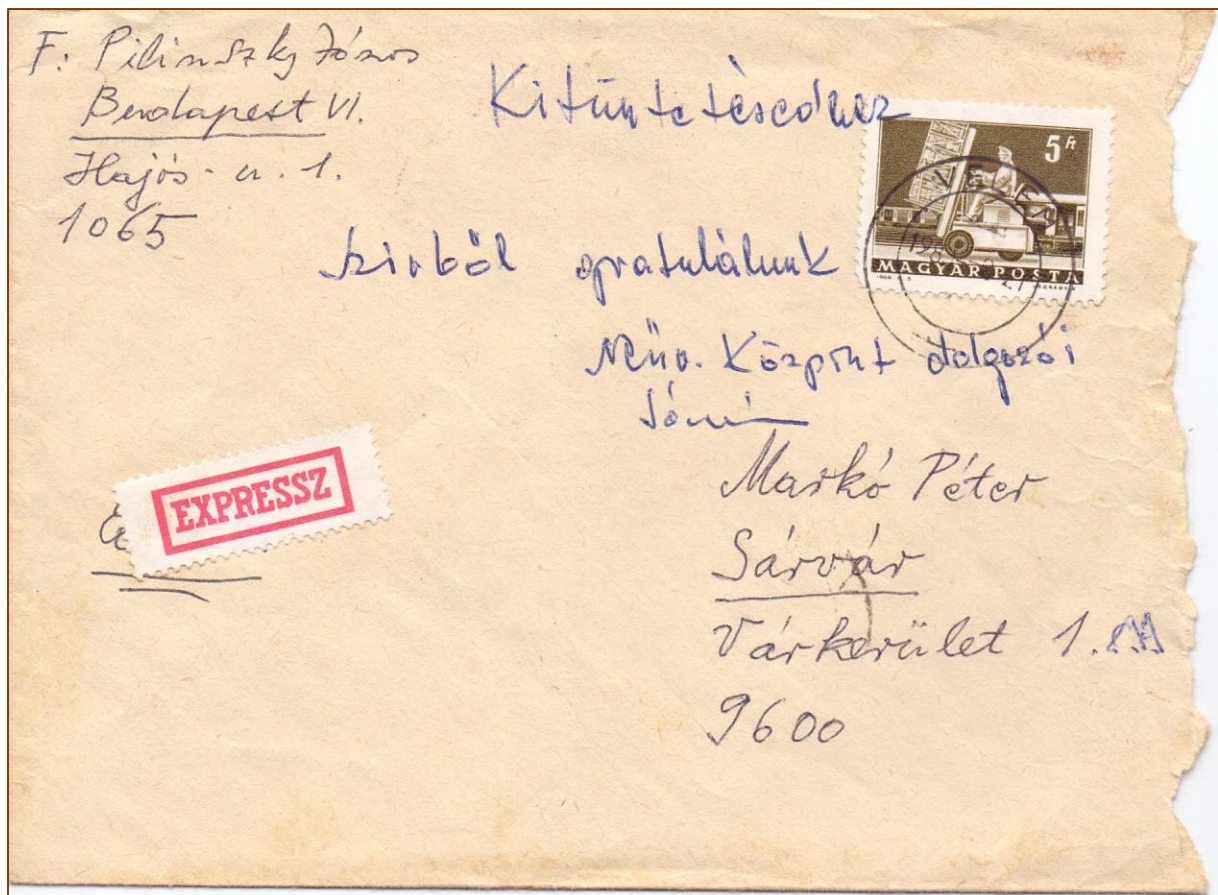 F: Pilinszky János
Budapest VI.
Hajós - u. 1.
1065
Kitüntetésedhez
szivből gratulálunk
Műv. Központ dolgozói
5 Ft
MAGYAR POSTA
EXPRESSZ
Markó Péter
Sárvár
Várkerület 1.
9600